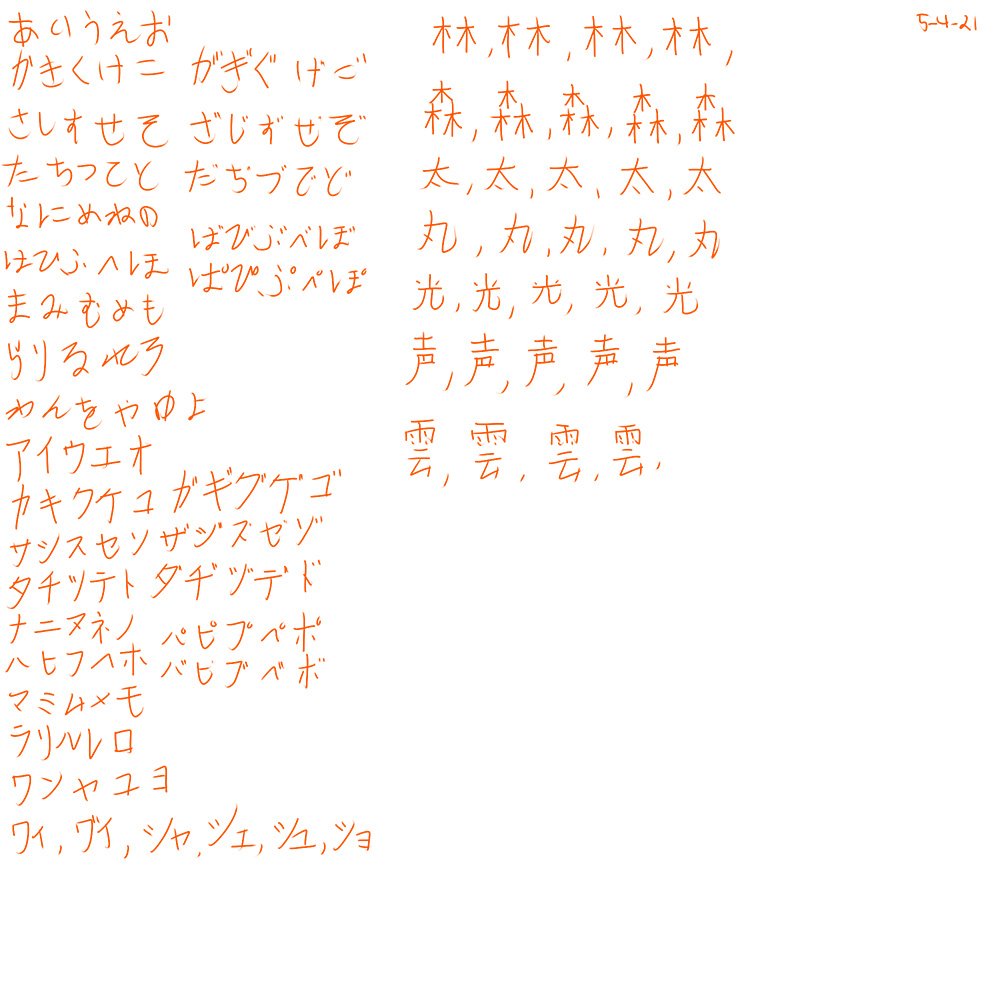 あいうえお
がきくけこ がぎぐげご
さしすせそ ざじずぜぞ
たちつてと だぢづでど
なにぬねの
はひふへほ ばびぶべぼ
ぱぴぷぺぽ
まみむめも
らりるれろ
わんをやゆよ
アイウエオ
カキクケコ ガギグゲゴ
サシスセソ ザジズゼゾ
タチツテト ダヂヅデド
ナニヌネノ パピプペポ
ハヒフヘホ バビブベボ
マミムメモ
ラリルレロ
ワンヤユヨ
ワィ, ヴイ, シャ, シェ, シュ, ショ
林, 林, 林, 林,
森, 森, 森, 森, 森
太, 太, 太, 太, 太
丸, 丸, 丸, 丸, 丸
光, 光, 光, 光, 光
声, 声, 声, 声, 声
雲, 雲, 雲, 雲,
5-4-21